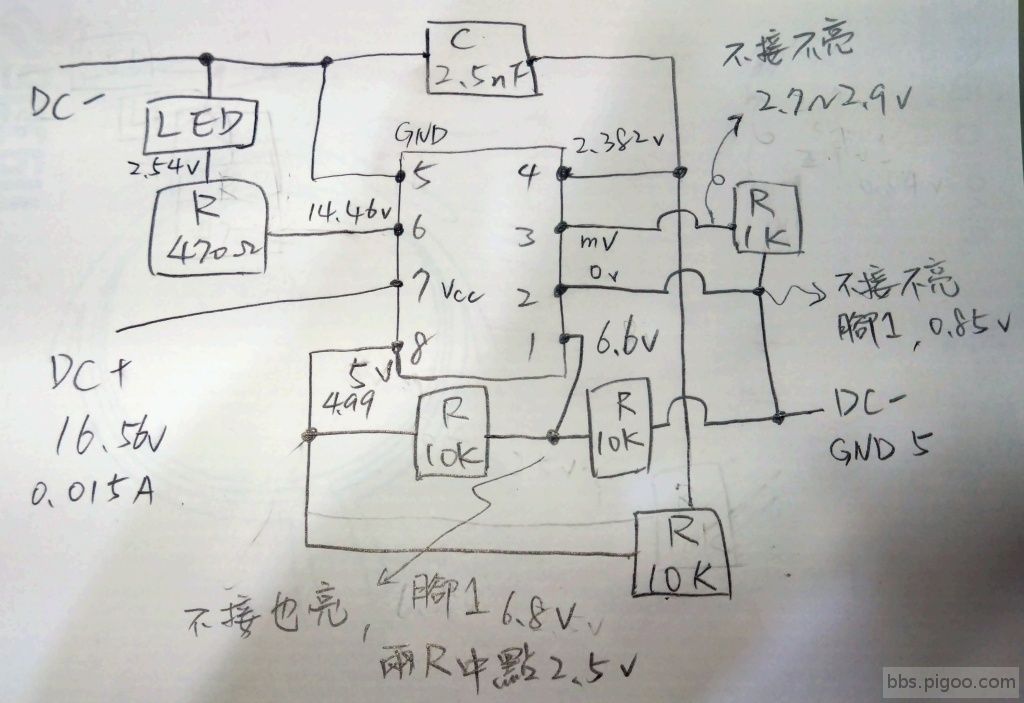 C
2.5nF
DC-
LED
2.54v
R
470Ω
14.46v
GND
5
6
7 Vcc
8
5v
4.99
4
3
2
1
2.382v
mV
0v
6.6v
不接不亮
2.7~2.9v
R
1K
不接不亮
腳1, 0.85v
DC+
16.56v
0.015A
R
10K
R
10K
DC-
GND 5
R
10K
不接也亮, 腳1 6.8v
兩R中點2.5v
bbs.pigoo.com